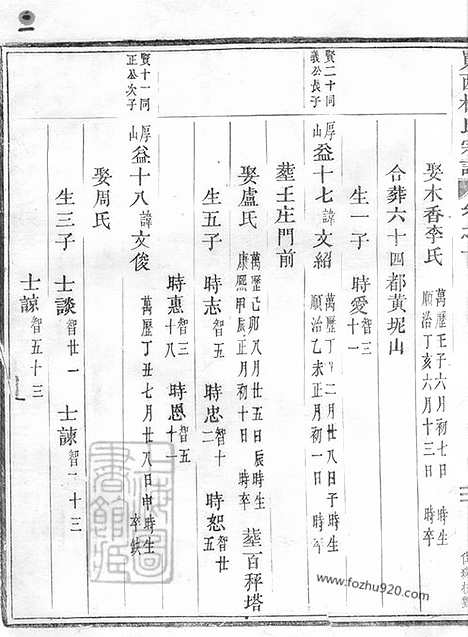 娶木香李氏 萬歷壬子六月初七日 時生 順治丁亥六月十三日 時卒
合葬六十四都黃坭山
生一子 時愛智三十一
賢二十同義公長子
厚山 益十七諱文紹 萬歷丁 二月廿八日子時生 順治乙未正月初一日 時卒
葬王庄門前
娶盧氏 萬歷己卯八月廿五日辰時生 康熙甲辰正月初十日 時卒 葬百秤塔
生五子 時志智五 時忠智十二 時恕智廿五
時惠智三十八 時恩智五十一
賢十一同正公次子
厚山 益十八諱文俊 萬歷丁丑七月廿八日申時生 卒缺
娶周氏
生三子 士談智廿一 士諫智一十三
士諒智五十三
www.fozhu920.com